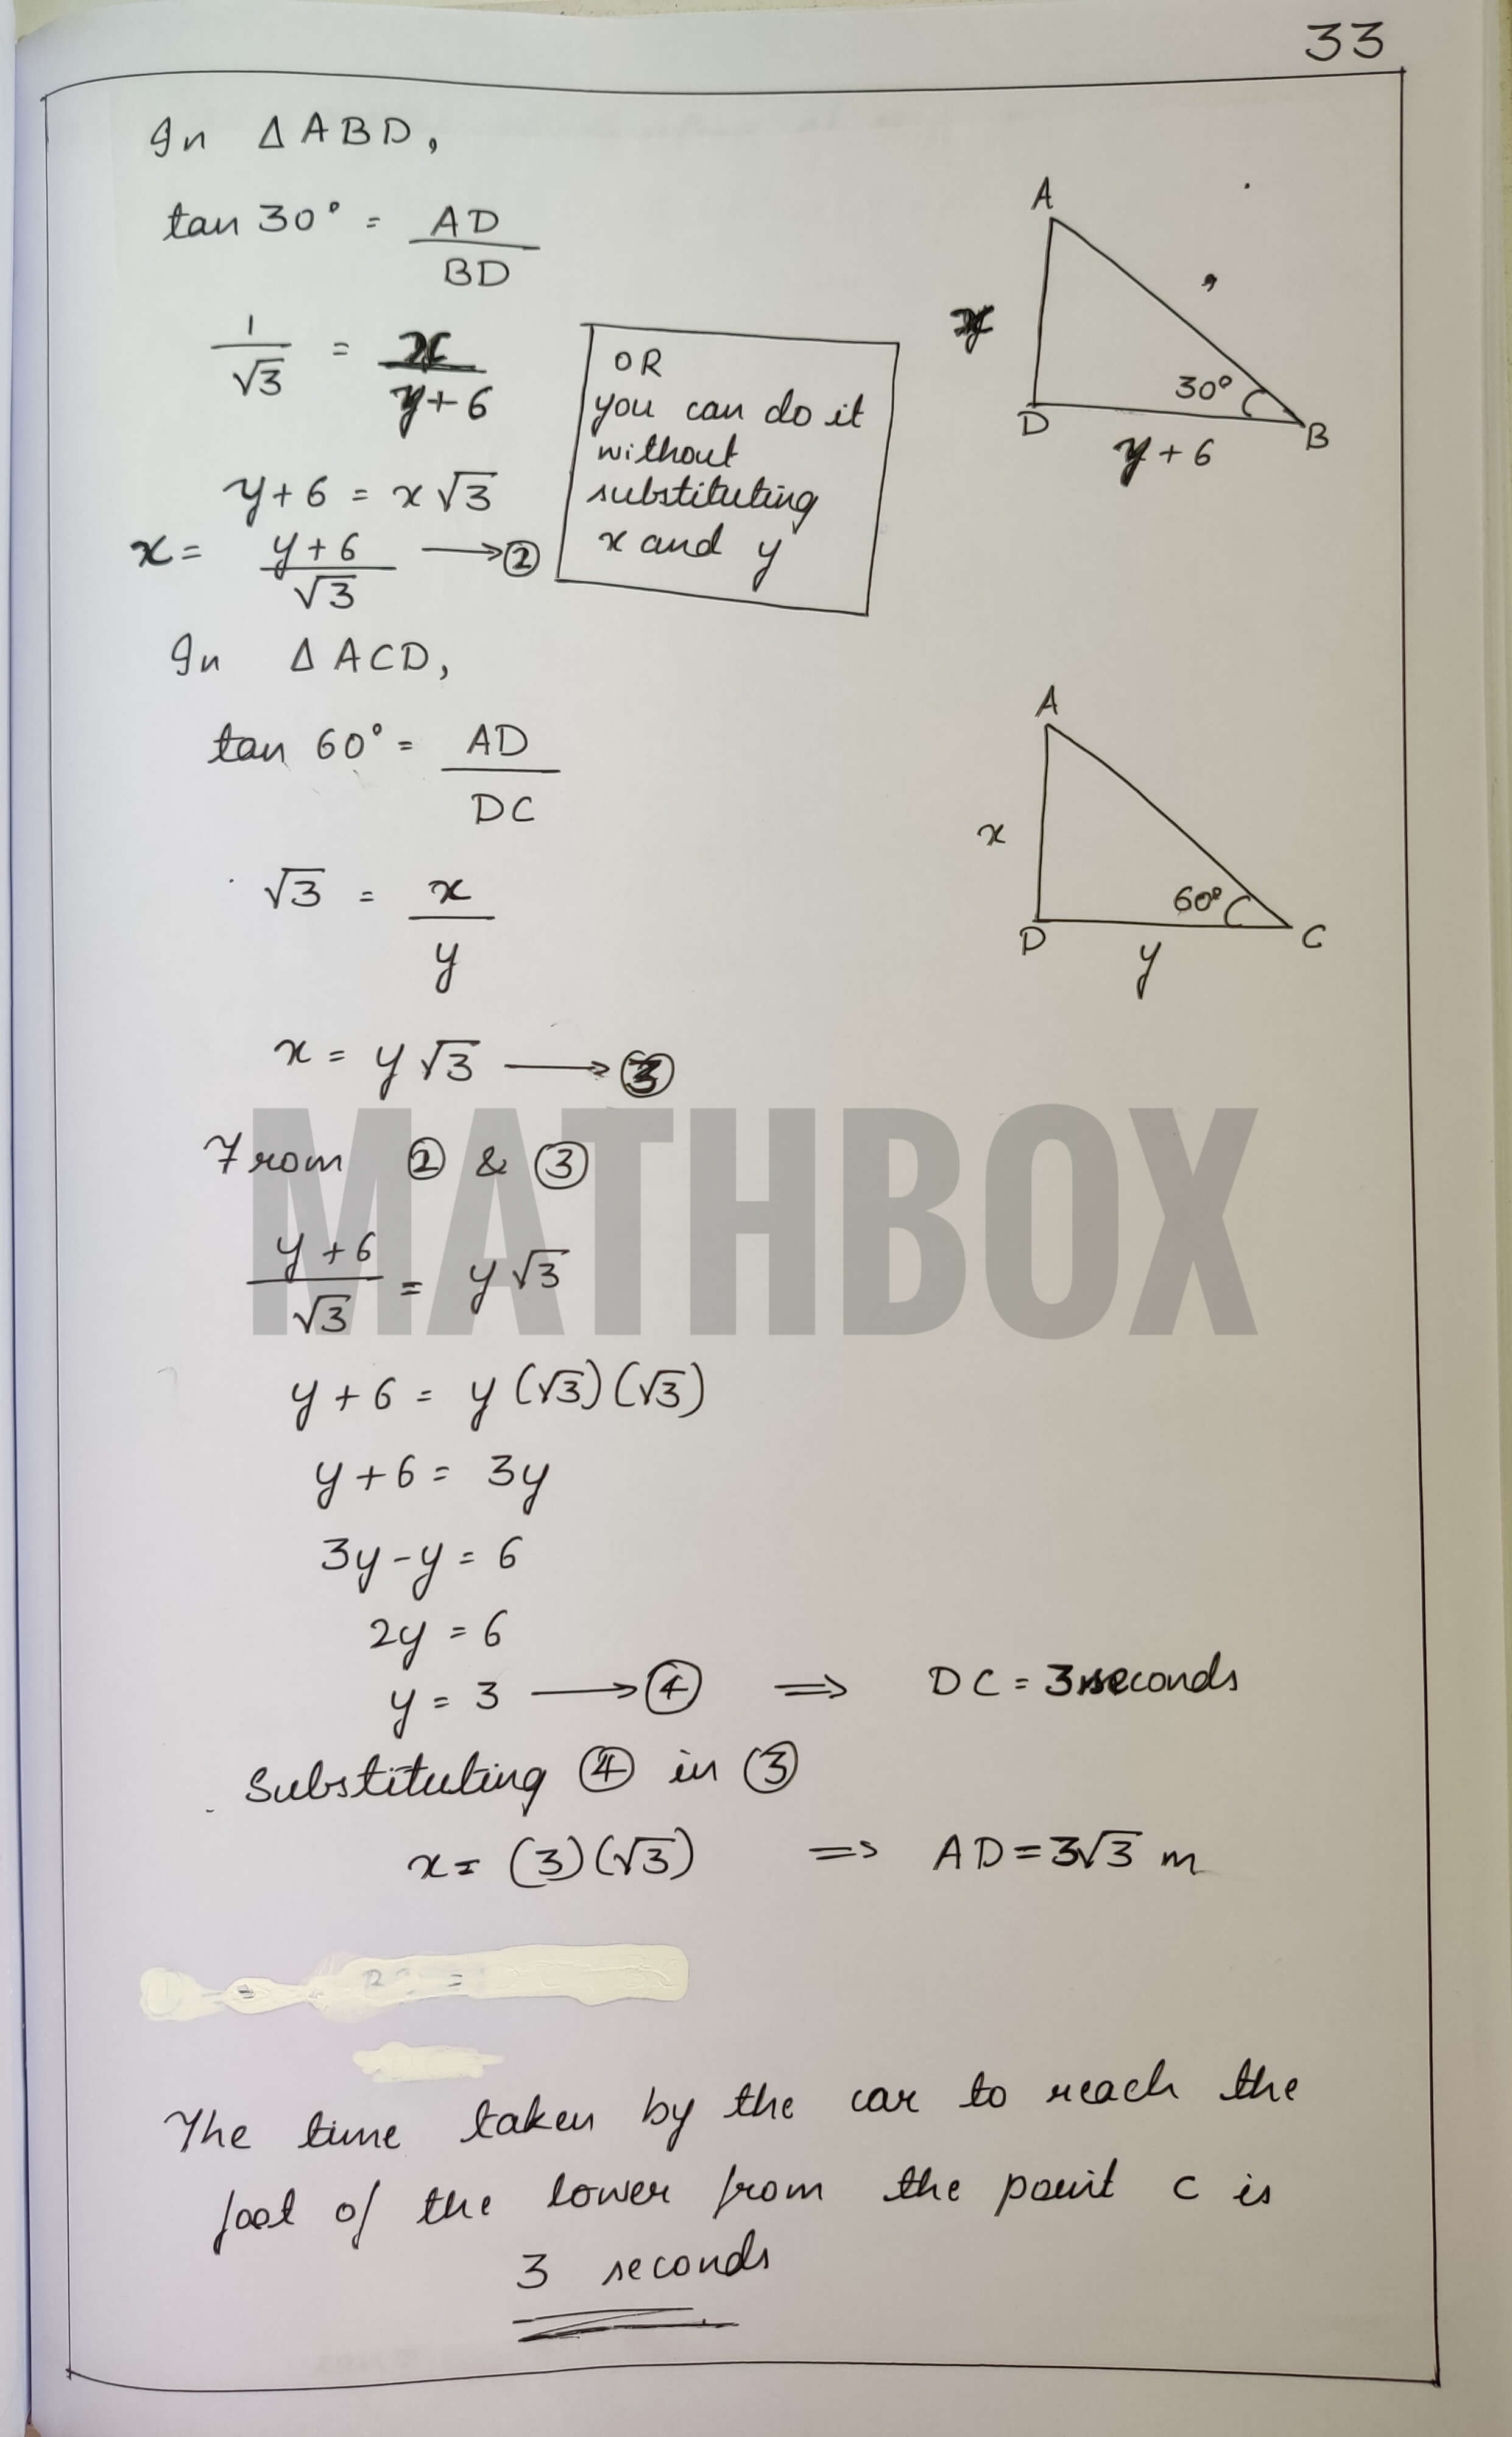 33
In Δ ABD,
tan 30° = AD / BD
1/√3 = x / y+6
y+6 = x√3
x = y+6 / √3 → ②
OR
you can do it
without
substituting
x and y
A
30°
D
B
y + 6
In Δ ACD,
tan 60° = AD / DC
√3 = x / y
x = y√3 → ③
A
x
60°
D
C
y
MATHBOX
From ② & ③
y + 6 / √3 = y√3
y + 6 = y (√3)(√3)
y + 6 = 3y
3y - y = 6
2y = 6
y = 3 → ④ ⇒ DC = 3 seconds
Substituting ④ in ③
x = (3)(√3) ⇒ AD = 3√3 m
The time taken by the car to reach the
foot of the tower from the point C is
3 seconds